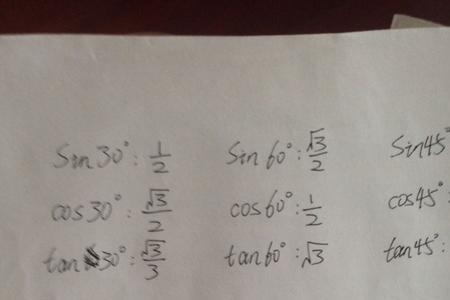 Sin30°: 1/2 Sin60°: √3/2 Sin45°
cos30°: √3/2 cos60°: 1/2 cos45°:
tan30°: √3/3 tan60°: √3 tan45°: